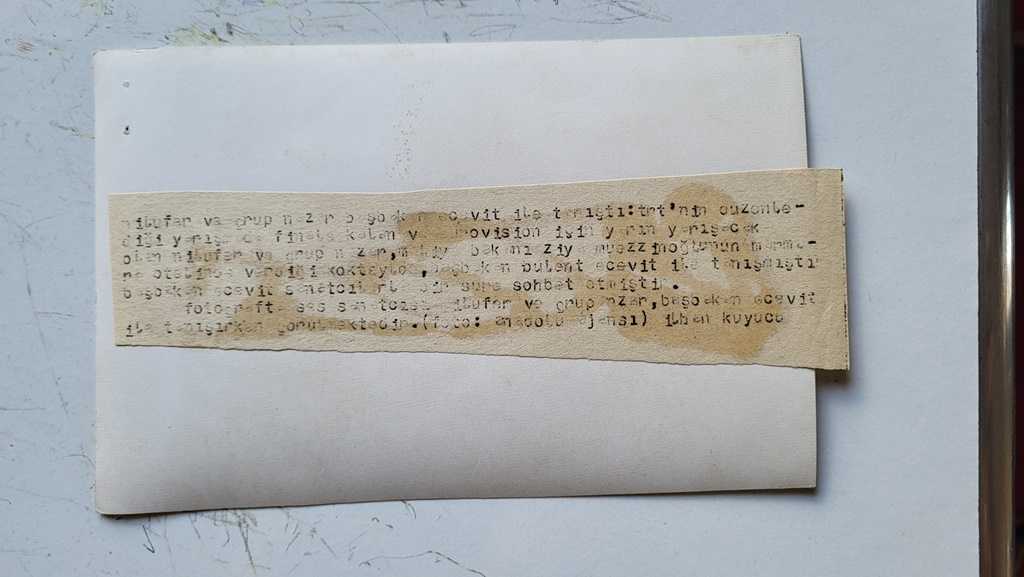 nilufer ve grup nazar başbakan ecevit ile tanıştı:trt'nin duzenle-
diği yarışmada finale kalan ve eurovision için yarın yarışacak
olan nilufer ve grup nazar,maliye bakanı ziya muezzinoğlunun marma-
ra otelinde verdiği kokteylde,başbakan bulent ecevit ile tanışmıştır
başbakan ecevit sanatcılarla bir sure sohbet etmiştir.
fotografta ses sanatcısı nilufer ve grup nazar,başbakan ecevit
ile tanışırken gorulmektedir.(foto: anadolu ajansı) ilhan kuyucu